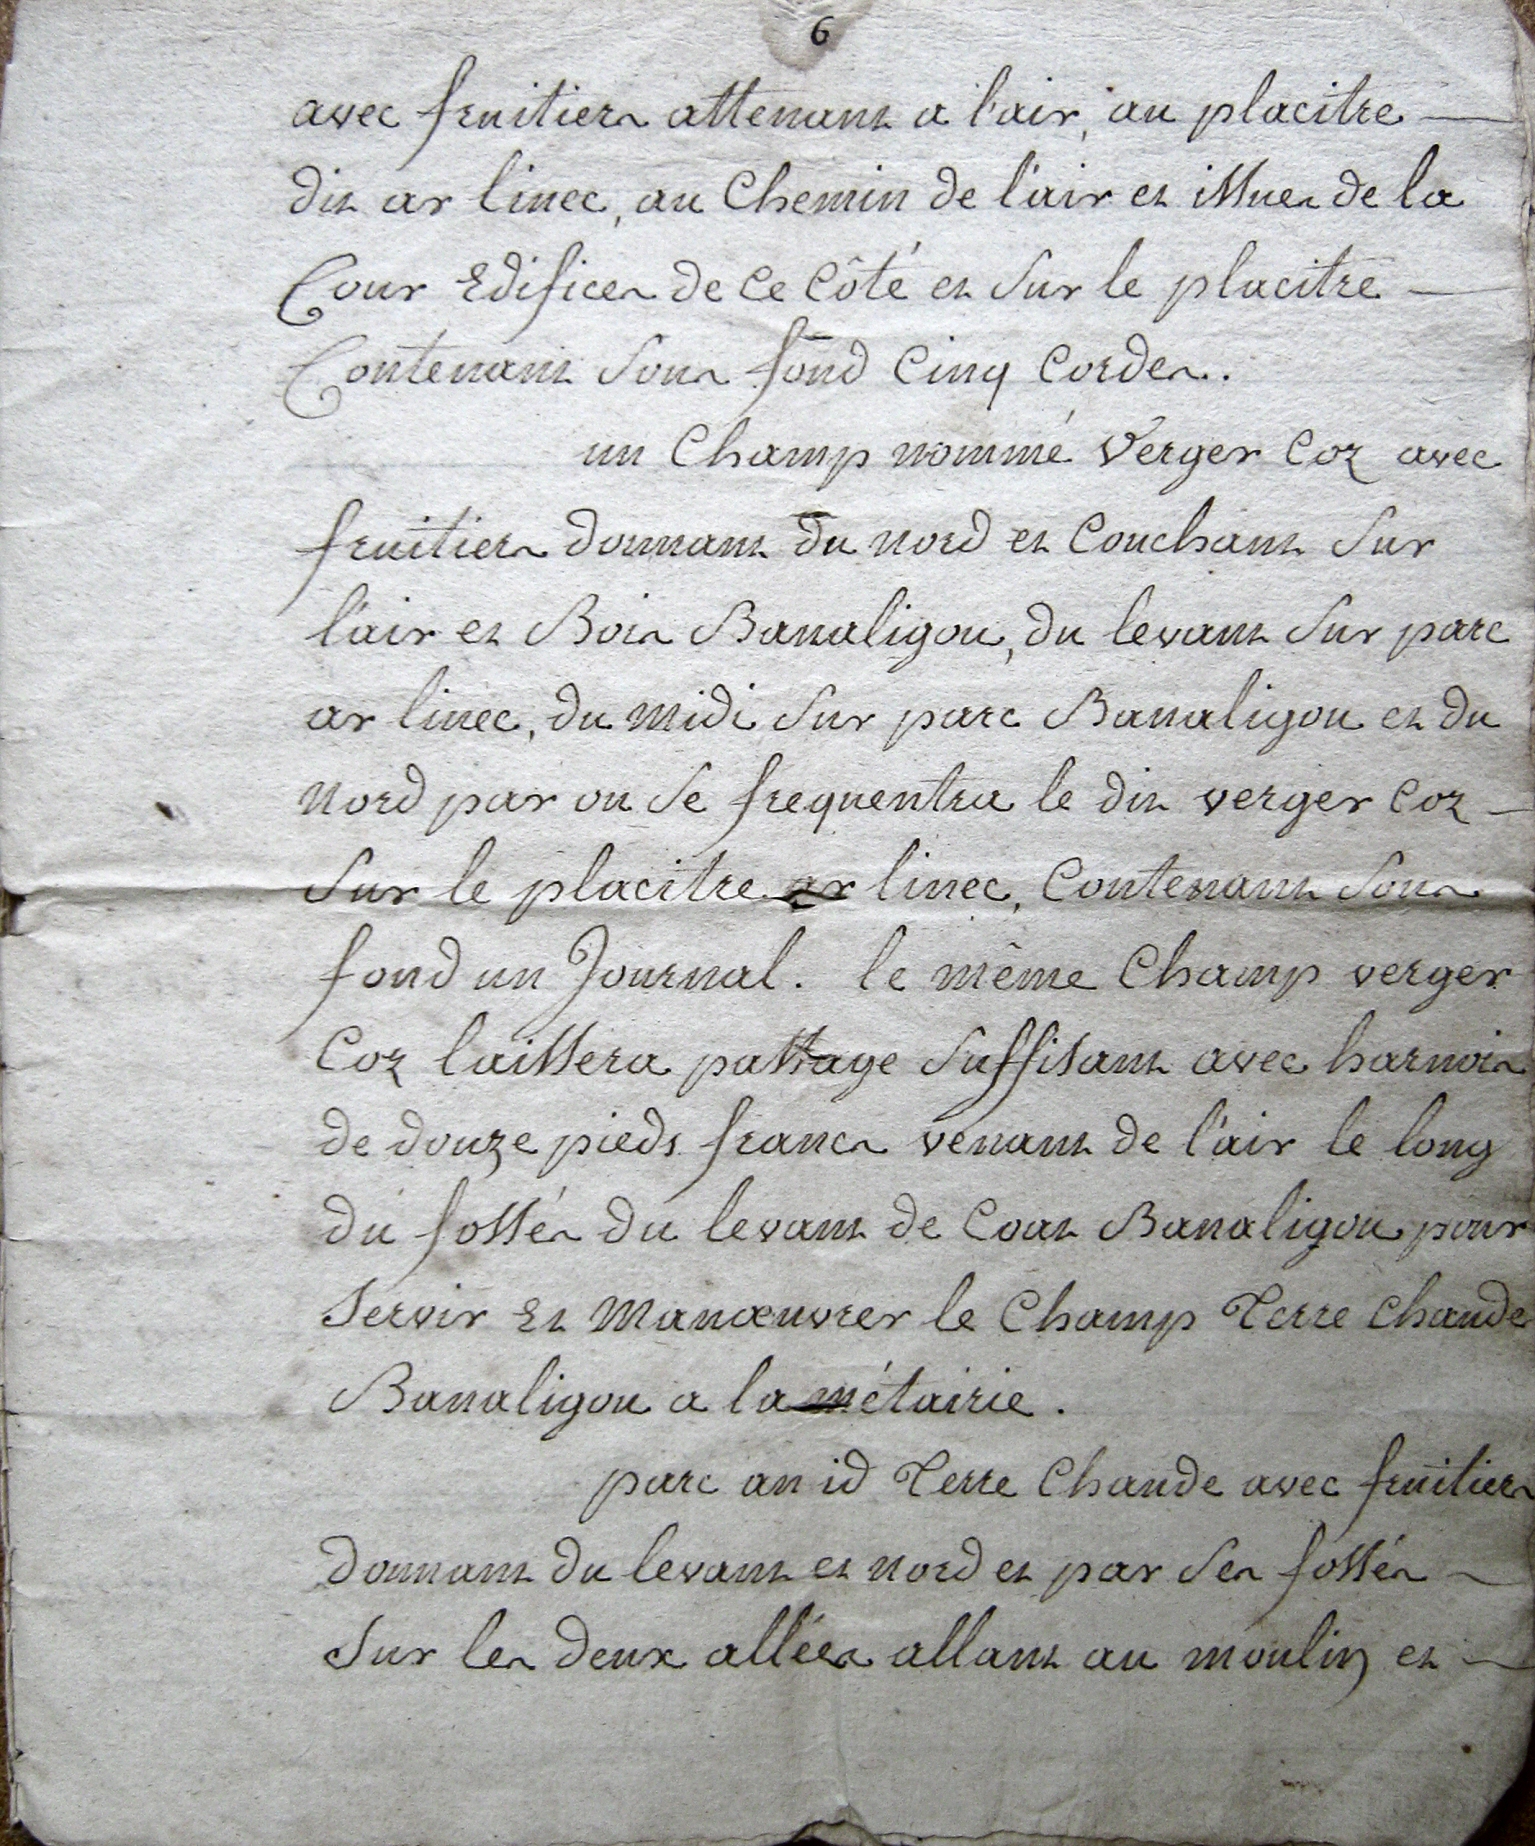 6
avec fruitiers attenant a l'air, au placitre
dit ar linec, au Chemin de l'air et issues de la
Cour Edifices de Ce Côté et Sur le placitre
Contenant Sous fond Cinq Cordes.
un Champ nommé Verger Coz avec
fruitiers donnant du nord et Couchant Sur
l'air et Bois Banaligou, du levant Sur parc
ar linec, du midi Sur parc Banaligou et du
nord par ou Se frequentra le dit verger Coz
Sur le placitre ar linec, Contenant Sous
fond un Journal. le même Champ verger
Coz laissera passage Suffisant avec harnois
de douze pieds francs venant de l'air le long
du fossés du levant de Coat Banaligou pour
Servir Et Manœuvrer le Champ Terre Chaude
Banaligou a la métairie.
parc an id Terre Chaude avec fruitiers
donnant du levant et nord et par Ses fossés
Sur les deux allées allant au moulin et